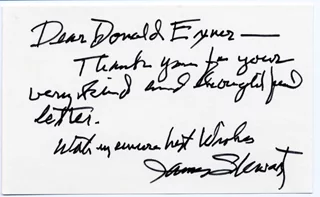 Dear Donald Exner —
Thank you for your
very kind and thoughtful
letter.
With my sincere best Wishes
James Stewart